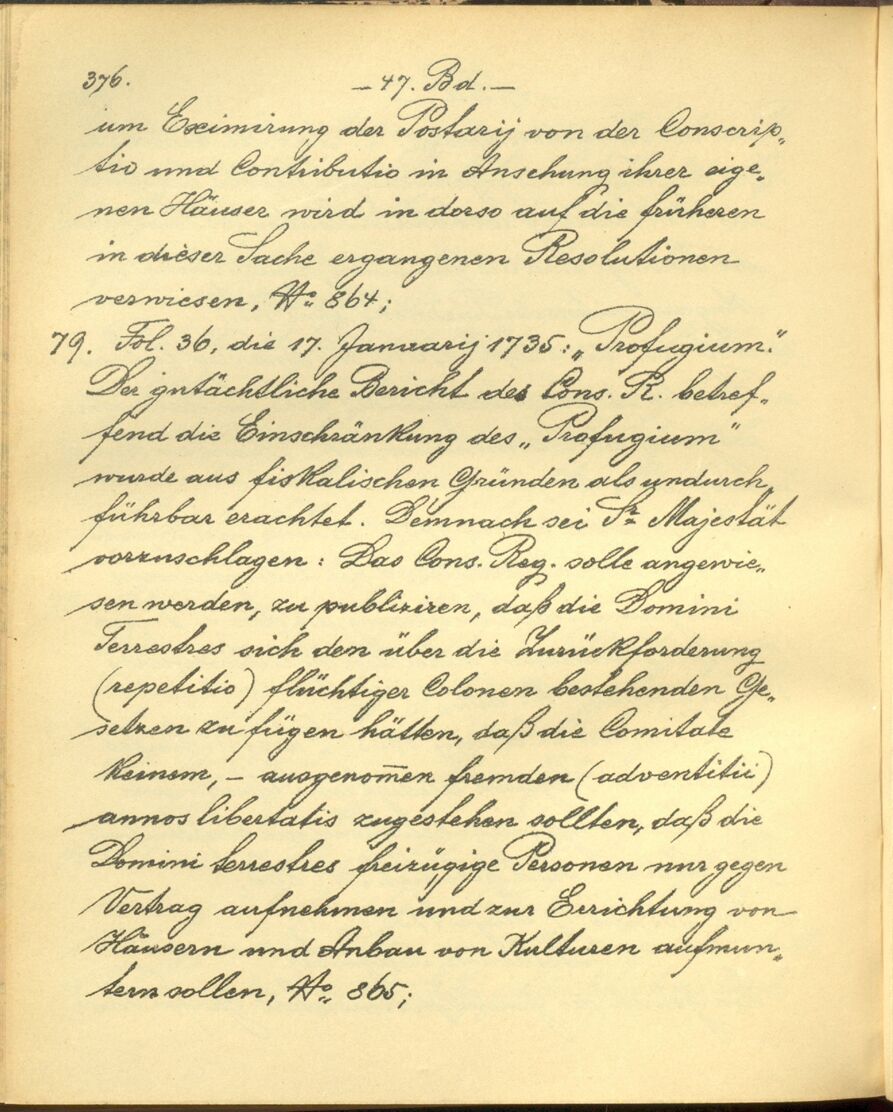 376.
— 47. Bd. —
um Eximirung der Postarij von der Conscrip„
tio und Contributio in Ansehung ihrer eige„
nen Häuser wird in dorso auf die früheren
in dieser Sache ergangenen Resolutionen
verwiesen, No. 864;
79. Fol. 36, die 17. Januarij 1735: „Profugium.“
Der gutächtliche Bericht des Cons. R. betref„
fend die Einschränkung des „Profugium“
wurde aus fiskalischen Gründen als undurch„
führbar erachtet. Demnach sei Sr. Majestät
vorzuschlagen: Das Cons. Reg. solle angewie„
sen werden, zu publiziren, daß die Domini
Terrestres sich den über die Zurückforderung
(repetitio) flüchtiger Colonen bestehenden Ge„
setzen zu fügen hätten, daß die Comitate
keinem, – ausgenom̅en fremden (adventitii)
annos libertatis zugestehen sollten, daß die
Domini terrestres freizügige Personen nur gegen
Vertrag aufnehmen und zur Errichtung von
Häusern und Anbau von Kulturen aufmun„
tern sollen, No. 865;